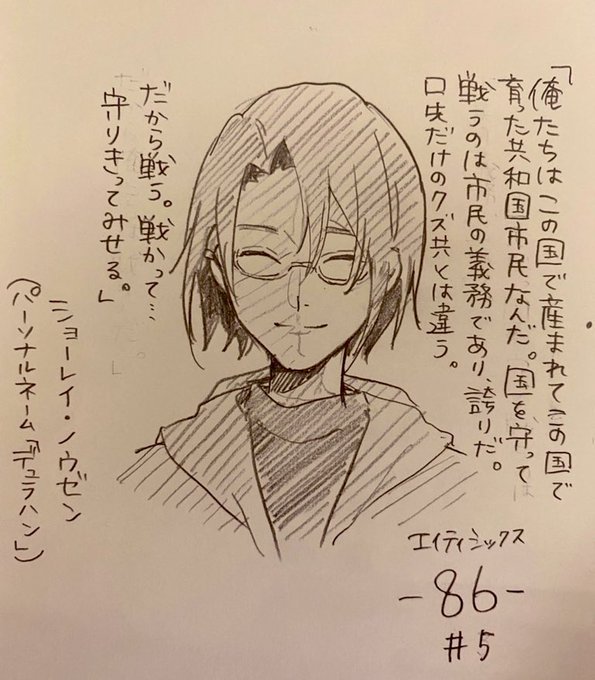 「俺たちはこの国で産まれてこの国で
育った共和国市民なんだ。国を守って
戦うのは市民の義務であり、誇りだ。
口先だけのクズ共とは違う。
だから戦う。戦かって…
守りきってみせる。」
ショーレイ・ノウゼン
(パーソナルネーム「デュラハン」)
エイティシックス
-86-
#5